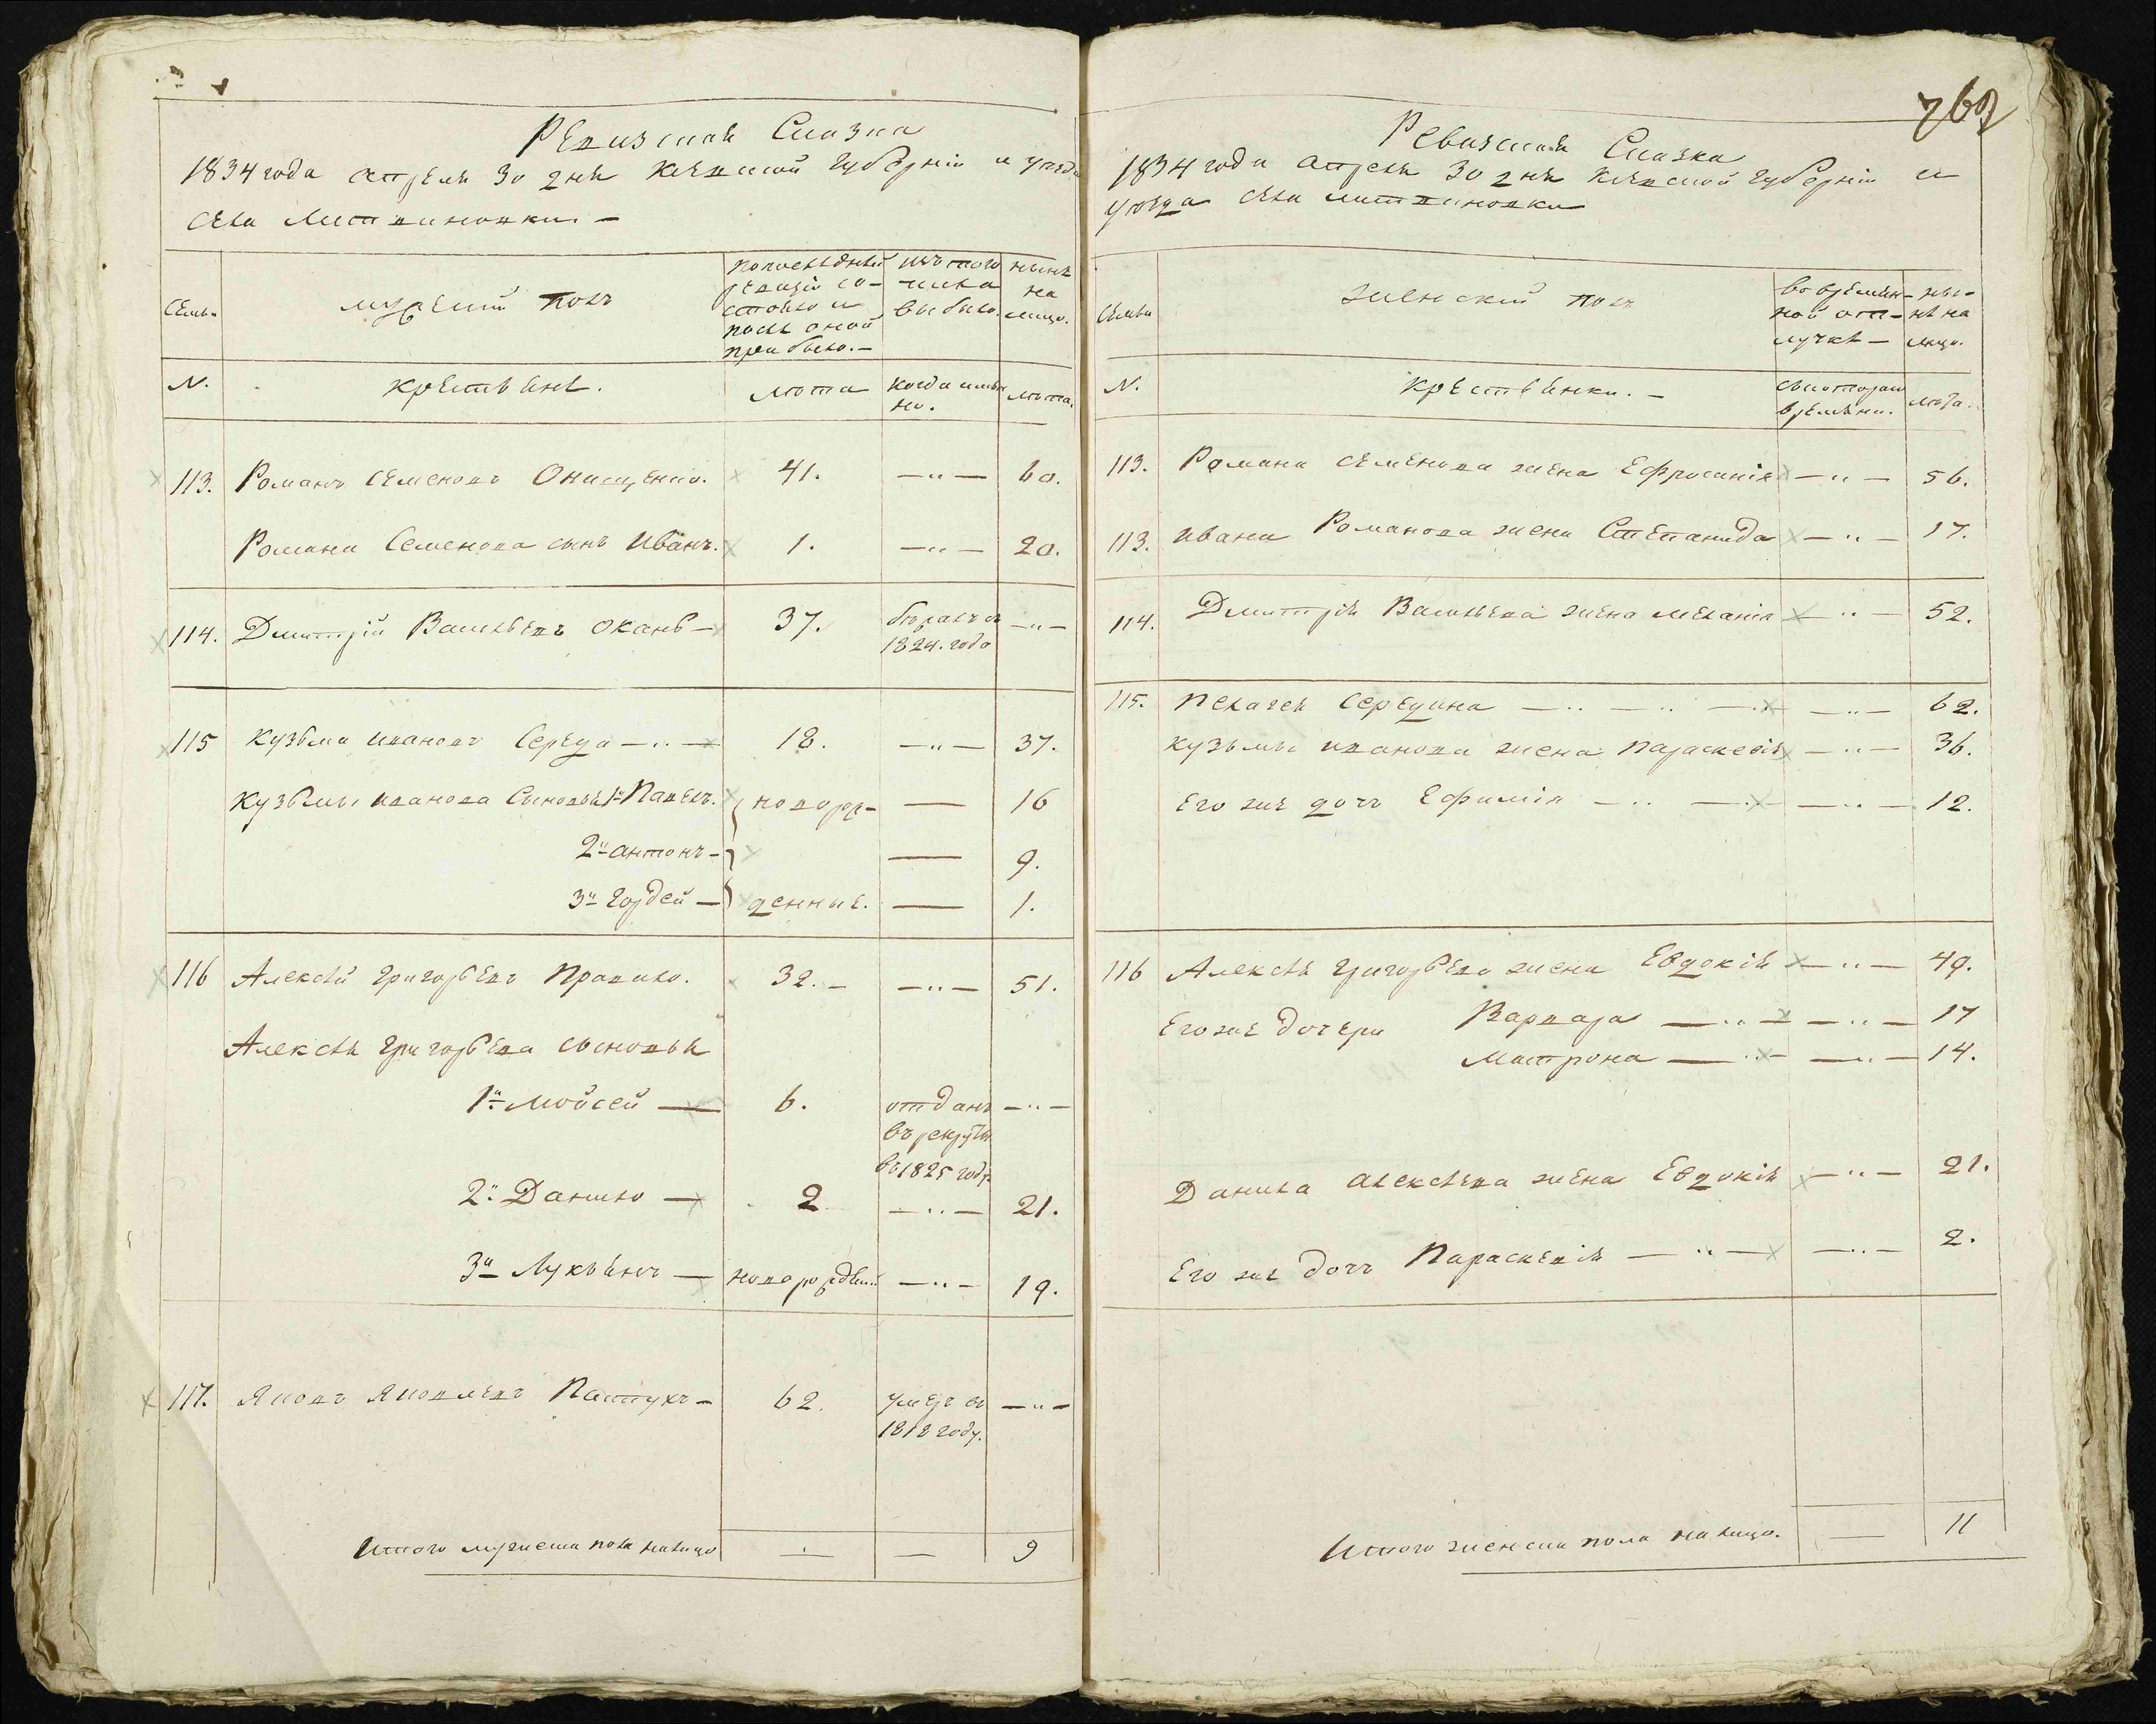 Ревизская Сказка
1834 года апреля 30 дня Киевской Губерніи и уезда
села Литвиновки. —
Семьи
мужеский полъ
По последней ревизіи состояло и после оной прибыло. —
изъ того числа выбыло.
ныне на лицо.
N.
крестьяне.
лета
когда имянно.
лета.
113. Романъ Семеновъ Онищенко. 41. — " — 60.
Романа Семенова сынъ Иванъ. 1. — " — 20.
114. Дмитрій Васильевъ Окань — 37. — " —
1824. года
115 Кузьма Ивановъ Середа — " — 18. — " — 37.
Кузьмы Иванова Сыновья 1й Павелъ. новорж- — 16
2й Антонъ — — 9.
3й Гордей — денные. — 1.
116 Алексей Григорьевъ Правило. 32. — — " — 51.
Алексея Григорьева сыновья
1й Мойсей — 6. отданъ — " —
въ рекруты
въ 1825 году
2й Данило — 2 — " — 21.
3й Лукьянъ — новорожденный — " — 19.
117. Яковъ Яковлевъ Пастухъ — 62. умеръ въ — " —
1818 году.
Итого мужеска пола налицо — — 9
762
Ревизская Сказка
1834 года апреля 30 дня Киевской Губерніи и
уезда села Литвиновки
Семьи
женский полъ
Во временной отлучке —
ныне на лицо.
N.
Крестьянки. —
съ котораго времени.
лета.
113. Романа Семенова жена Ефросинія — " — 56.
113. Ивана Романова жена Степанида — " — 17.
114. Дмитрія Васильева жена Меланія — " — 52.
115. Пелагея Середина — " — " — " — — " — 62.
Кузьмы Иванова жена Параскевія — " — 36.
Его же дочь Ефимія — " — — — " — 12.
116 Алексея Григорьева жена Евдокія — " — 49.
Его же дочери Варвара — " — — " — 17
Матрона — " — — " — 14.
Данила Алексеева жена Евдокія — " — 21.
Его же дочь Параскевія — " — — " — 2.
Итого женска пола на лицо. — 11